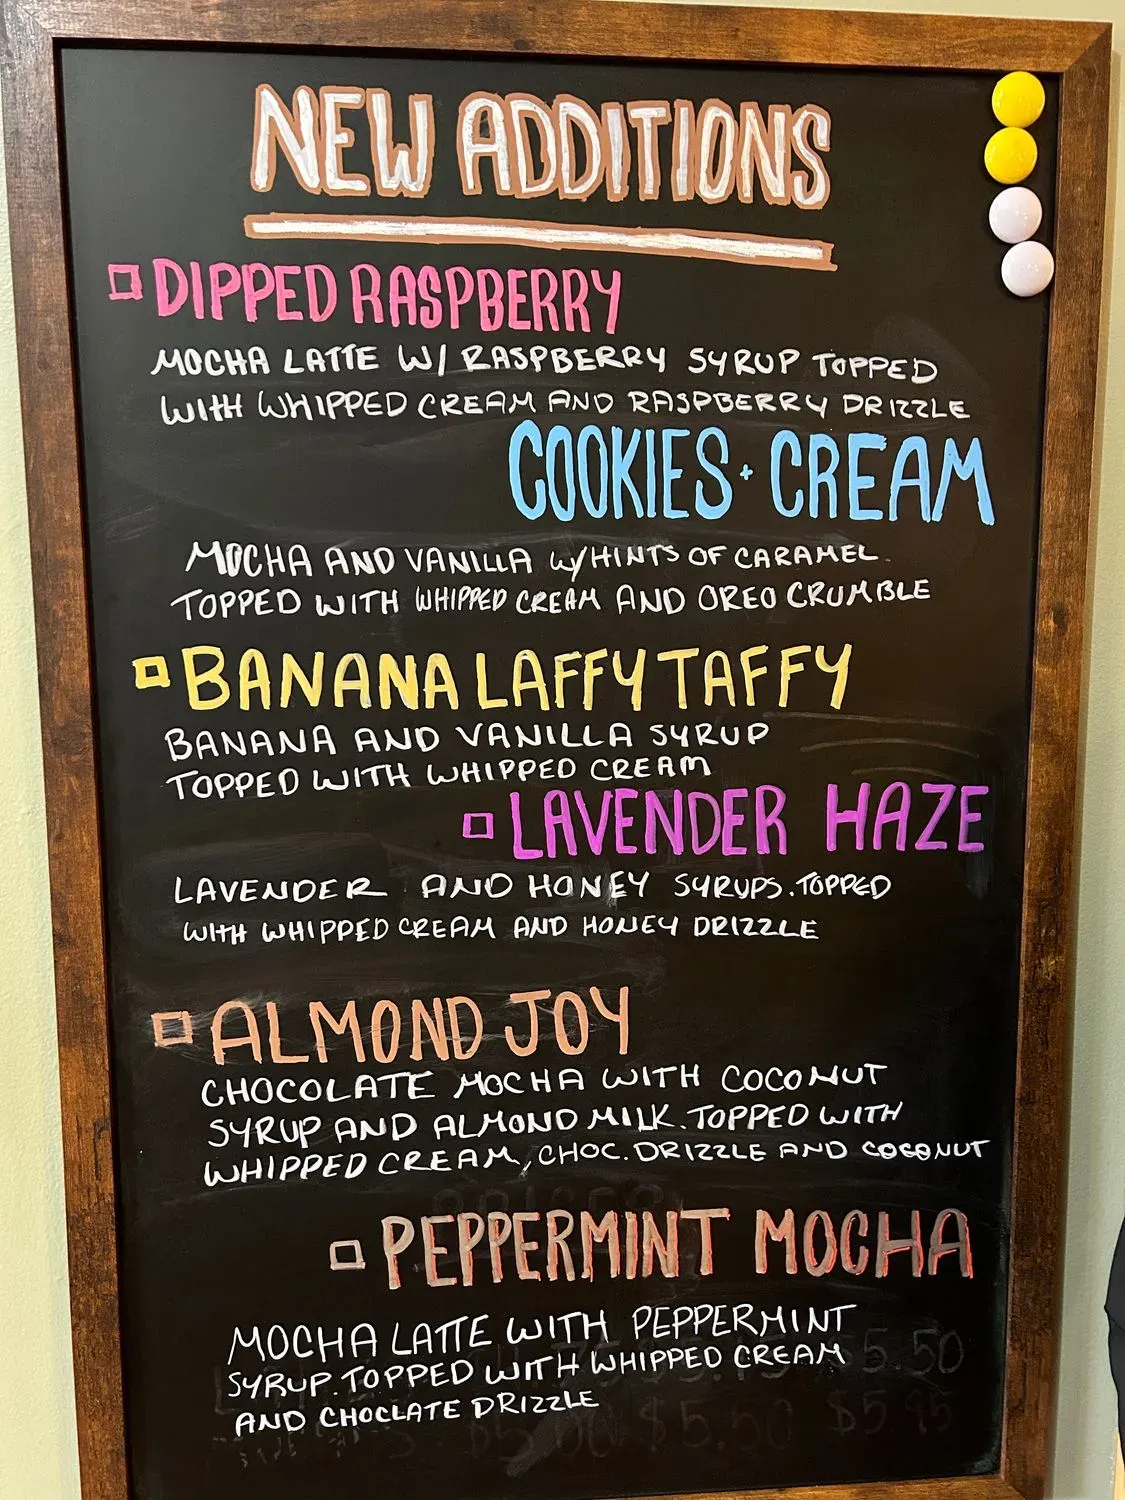 NEW ADDITIONS
DIPPED RASPBERRY
MOCHA LATTE W/ RASPBERRY SYRUP TOPPED
WITH WHIPPED CREAM AND RASPBERRY DRIZZLE
COOKIES + CREAM
MOCHA AND VANILLA W/HINTS OF CARAMEL.
TOPPED WITH WHIPPED CREAM AND OREO CRUMBLE
BANANA LAFFY TAFFY
BANANA AND VANILLA SYRUP
TOPPED WITH WHIPPED CREAM
LAVENDER HAZE
LAVENDER AND HONEY SYRUPS. TOPPED
WITH WHIPPED CREAM AND HONEY DRIZZLE
ALMOND JOY
CHOCOLATE MOCHA WITH COCONUT
SYRUP AND ALMOND MILK. TOPPED WITH
WHIPPED CREAM, CHOC. DRIZZLE AND COCONUT
PEPPERMINT MOCHA
MOCHA LATTE WITH PEPPERMINT
SYRUP. TOPPED WITH WHIPPED CREAM
$5.50
AND CHOCLATE DRIZZLE
$5.50 $5.95